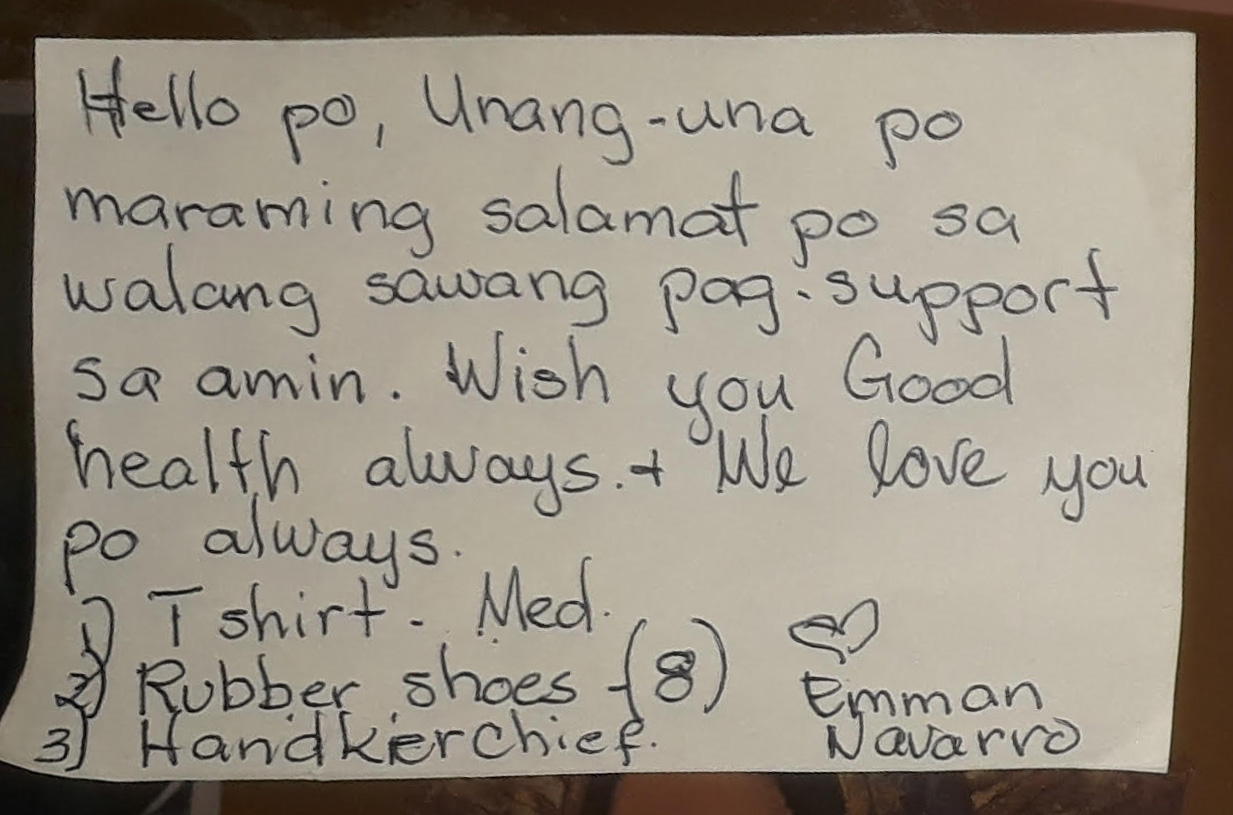 Hello po, Unang-una po
maraming salamat po sa
walang sawang pag-support
sa amin. Wish you Good
health always. + We love you
po always.
1) T shirt - Med.
2) Rubber shoes - (8)
3) Handkerchief.
Emman
Navarro